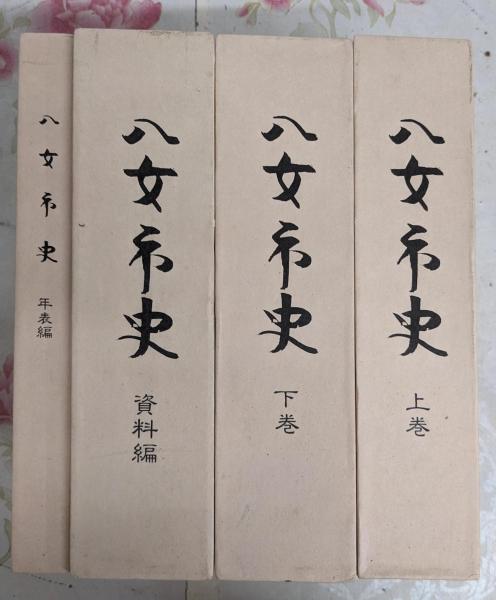 八女市史
上巻
八女市史
下巻
八女市史
資料編
八女市史
年表編